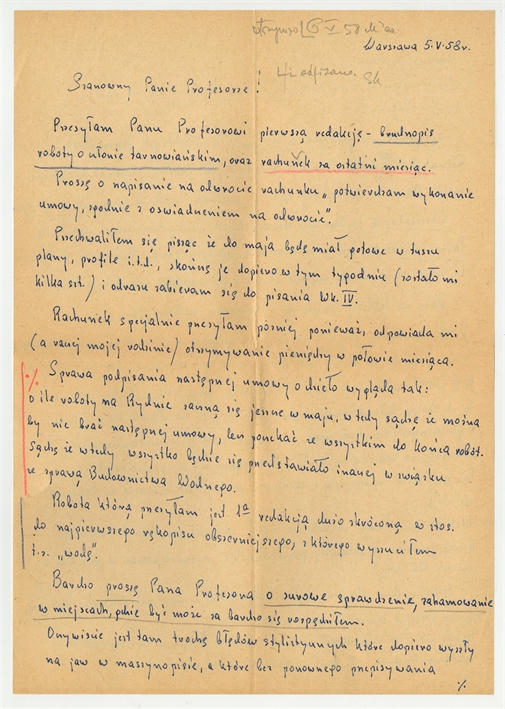 otrzymał 6 V 58
Warszawa 5.V.58r.
odpisano
Szanowny Panie Profesorze!
Przesyłam Panu Profesorowi pierwszą redakcję - brudnopis
roboty o ułonie tarnowiańskim, oraz rachunek za ostatni miesiąc.
Proszę o napisanie na odwrocie rachunku „potwierdzam wykonanie
umowy, zgodnie z oświadczeniem na odwrocie".
Przechwaliłem się pisząc że do maja będę miał gotowe w tuszu
plany, profile i.t.d., skończę je dopiero w tym tygodniu (zostało mi
kilka szt.) i odrazu zabieram się do pisania Wk. IV.
Rachunek specjalnie przesyłam później ponieważ, odpowiada mi
(a raczej mojej rodzinie) otrzymywanie pieniędzy w połowie miesiąca.
Sprawa podpisania następnej umowy o dzieło wygląda tak:
o ile roboty na Rydnie zaczną się jeszcze w maju, wtedy sądzę że można
by nie brać następnej umowy, lecz poczekać ze wszystkim do końca robót.
Sądzę że wtedy wszystko będzie się przedstawiało inaczej w związku
ze sprawą Budownictwa Wodnego.
Robota którą przesyłam jest 1ą redakcją dużo skróconą w stos.
do najpierwszego rękopisu obszerniejszego, z którego wyrzuciłem
t.z. „wodę".
Bardzo proszę Pana Profesora o surowe sprawdzenie, zahamowanie
w miejscach, gdzie być może za bardzo się rozpędziłem.
Oczywiście jest tam trochę błędów stylistycznych które dopiero wyszły
na jaw w maszynopisie, a które bez ponownego przepisywania
./.